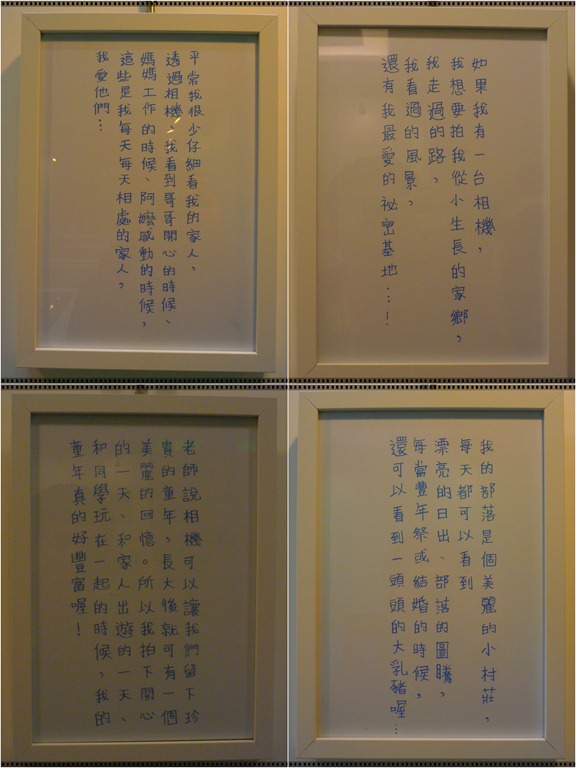 平常我很少仔細看我的家人，
透過相機，我看到哥哥開心的時候、
媽媽工作的時候、阿嬤感動的時候，
這些是我每天每天相處的家人，
我愛他們…
如果我有一台相機，
我想要拍我從小生長的家鄉，
我走過的路，
我看過的風景，
還有我最愛的祕密基地…！
老師說相機可以讓我們留下珍
貴的童年，長大後就可有一個
美麗的回憶。所以我拍下開心
的一天、和家人出遊的一天、
和同學玩在一起的時候，我的
童年真的好豐富喔！
我的部落是個美麗的小村莊，
每天都可以看到
漂亮的日出、部落的圖騰，
每當豐年祭或結婚的時候，
還可以看到一頭頭的大乳豬喔…